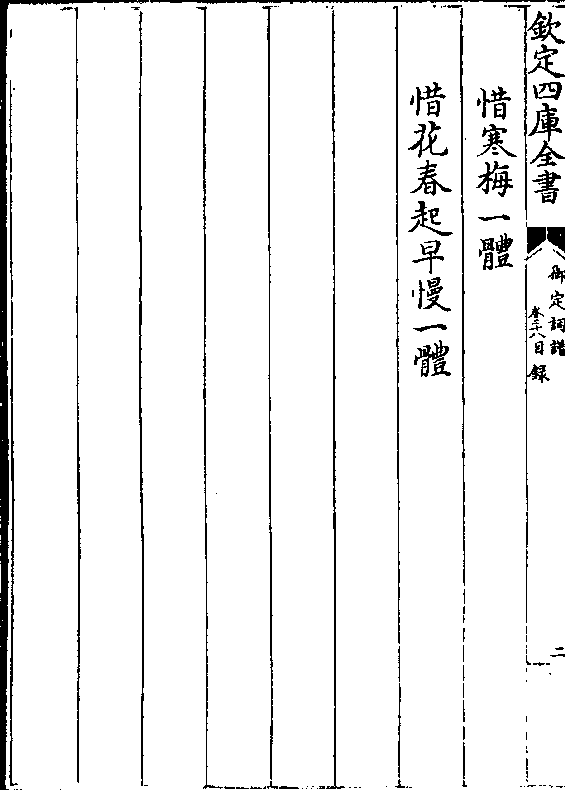 欽定四庫全書
御定詞譜
卷三十八目録
二
惜寒梅一體
惜花春起早慢一體